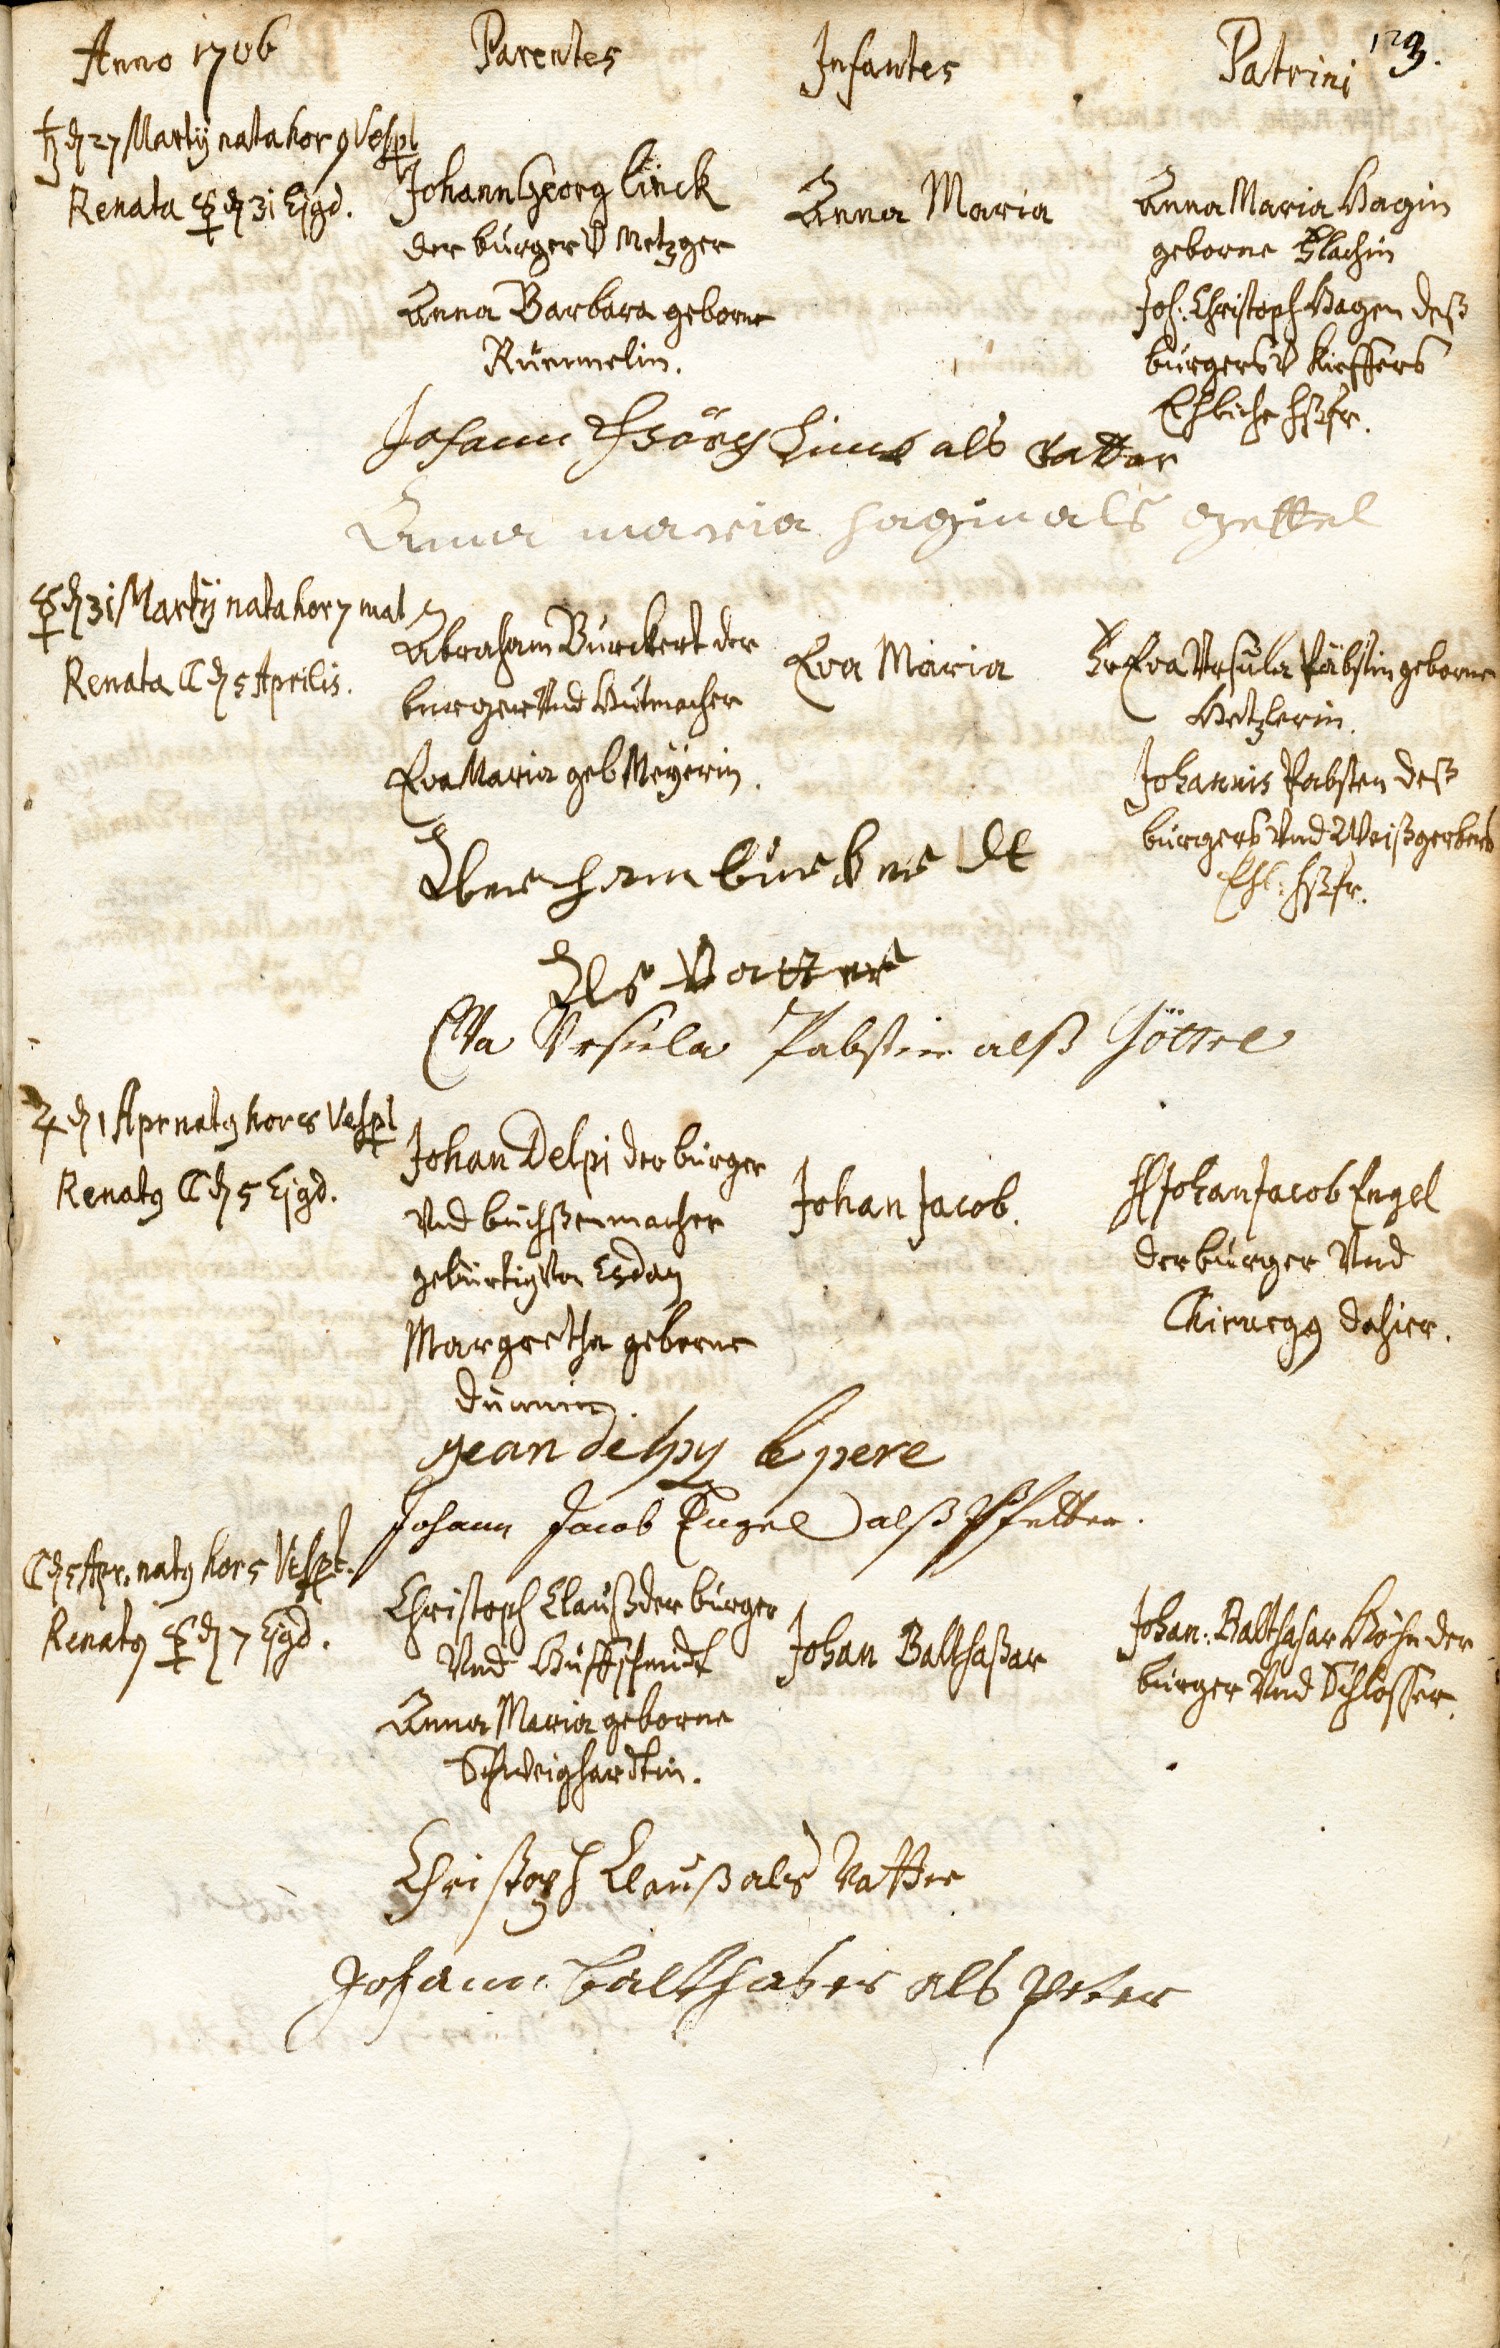 Anno 1706
Parentes
Infantes
Patrini
123.
♄ d 27 Martij nata hor 9 Vespt
Renata ☿ d 31 Ejgd.
Johann Georg Linck
der burger V Metzger
Anna Barbara geborne
Ruemmelin.
Anna Maria
Anna Maria Hagin
geborne Flachin
Joh: Christoph Hagen deß
burgers V Kieffers
Ehliche Hßfr.
Johann Jeörg Linck als Vatter
Anna maria haginals gettel
☿ d 31 Martij nata hor 7 mat
Renata ☾ d 5 Aprilis.
Abraham Burckert der
burger Vnd Hutmacher
Eva Maria geb Meÿerin.
Eva Maria
Fr Eva Vrsula Päbstin geborne
Hetzlerin.
Johannis Pabsten deß
burgers Vnd Weißgerbers
Ehl: Hßfr.
Als Vatter
Eva Vrsula Pabstin alß Göttel
♃ d 1 Apr natg hor 8 Vespt
Renatg ☾ d 5 Ejgd.
Johan Delpi der burger
Vnd buchßenmacher
gebürtig Von
Margretha geborne
Johan Jacob.
H Johan Jacob Engel
der burger Vnd
Chirurgg dahier.
jean delpy le pere
Johann Jacob Engel alß Pfetter.
☾ d 5 Apr. natg hor 5 Vespt.
Renatg ☿ d 7 Ejgd.
Christoph Clauß der burger
Vnd Huffschmidt
Anna Maria geborne
Schweighardtin.
Johan Balthaßar
Johan: Balthasar Höhn der
burger Vnd Schlosser.
Christoph Clauß als Vatter
Johann balthaser als peter